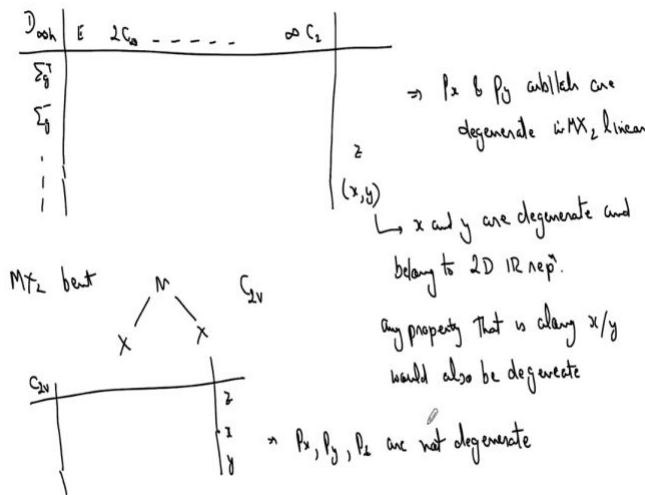 D∞h E 2C∞ - - - - - ∞ C2
Σg+
Σg-
z
(x,y)
⇒ Px & Py orbitals are
degenerate in MX2 linear
↳ x and y are degenerate and
belong to 2D IR repn.
any property that is along x/y
would also be degenerate
MX2 bent
M
X X
C2v
C2v
z
x
y
⇒ Px, Py, Pz are not degenerate